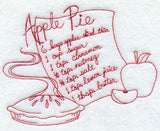 Apple Pie
6 large apples sliced thin
1 cup sugar
1 tsp cinnamon
1/4 tsp nutmeg
1/4 tsp salt
1 tsp lemon juice
1 tbsp butter